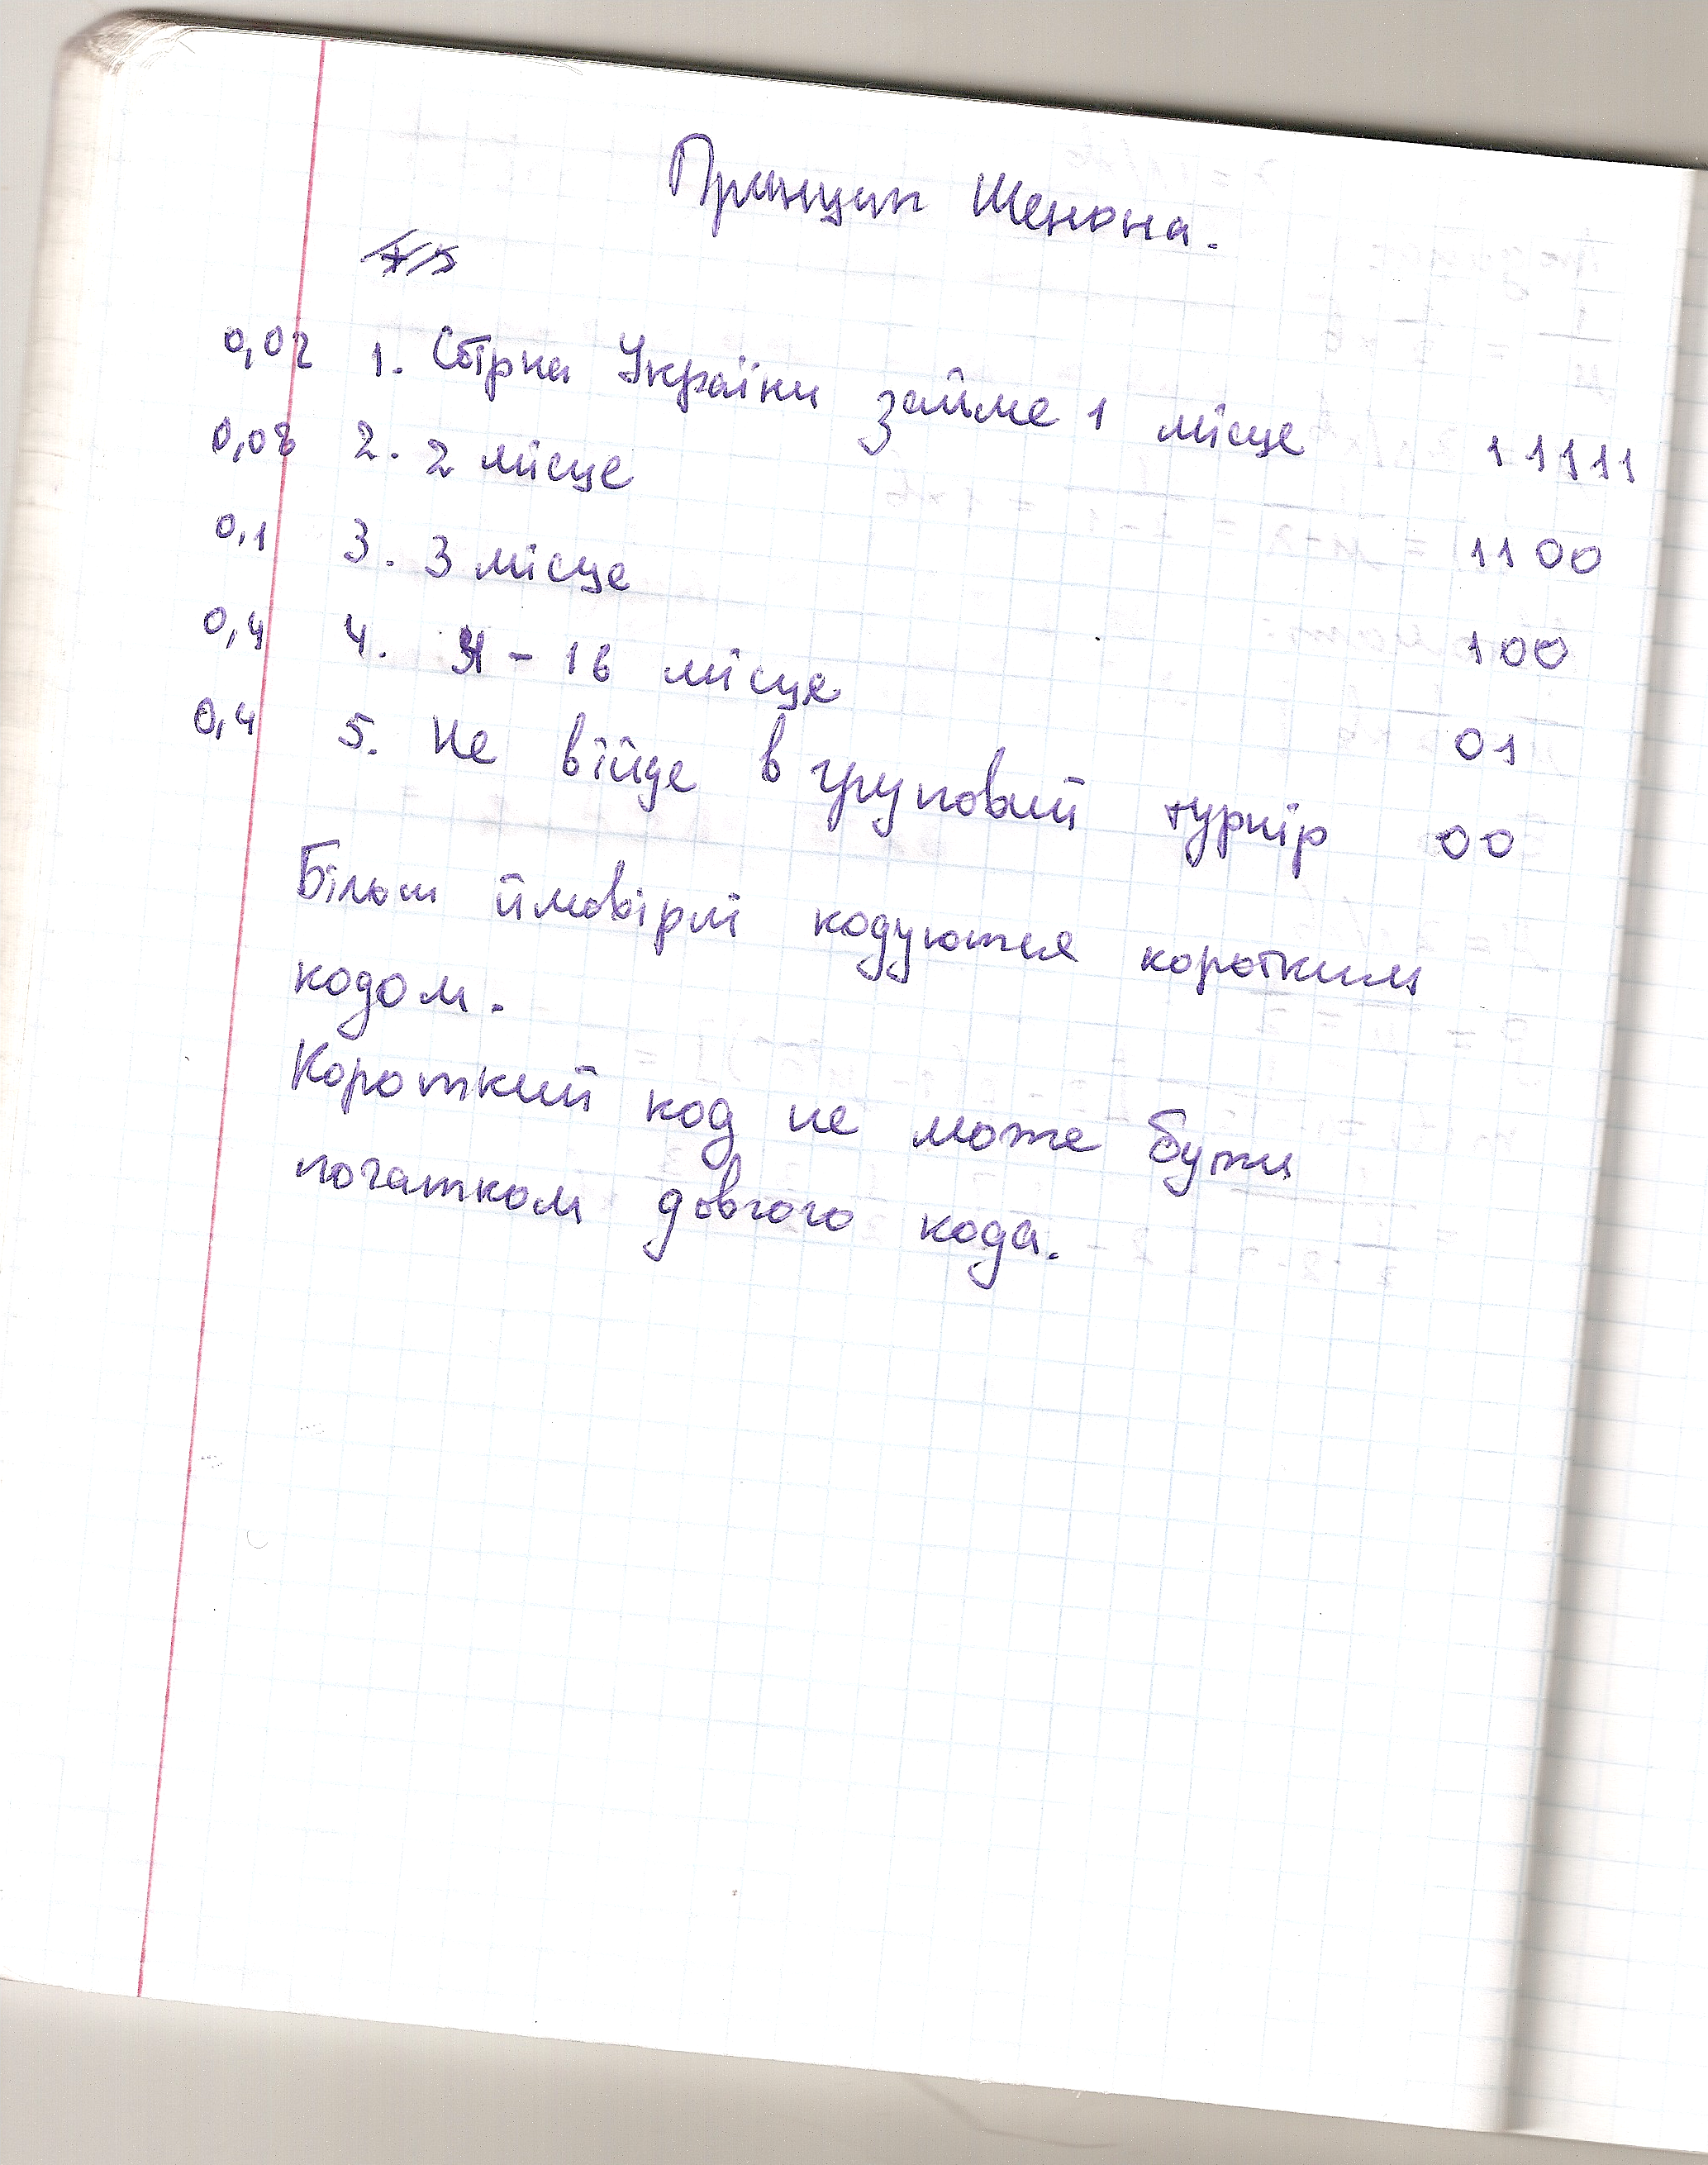 Принцип Шенона.
0,02 1. Збірна України займе 1 місце 11111
0,08 2. 2 місце 1100
0,1 3. 3 місце 100
0,4 4. 4 - 16 місце 01
0,4 5. Не війде в груповий турнір 00
Більш ймовірні кодуються коротким
кодом.
Короткий код не може бути
початком довгого кода.